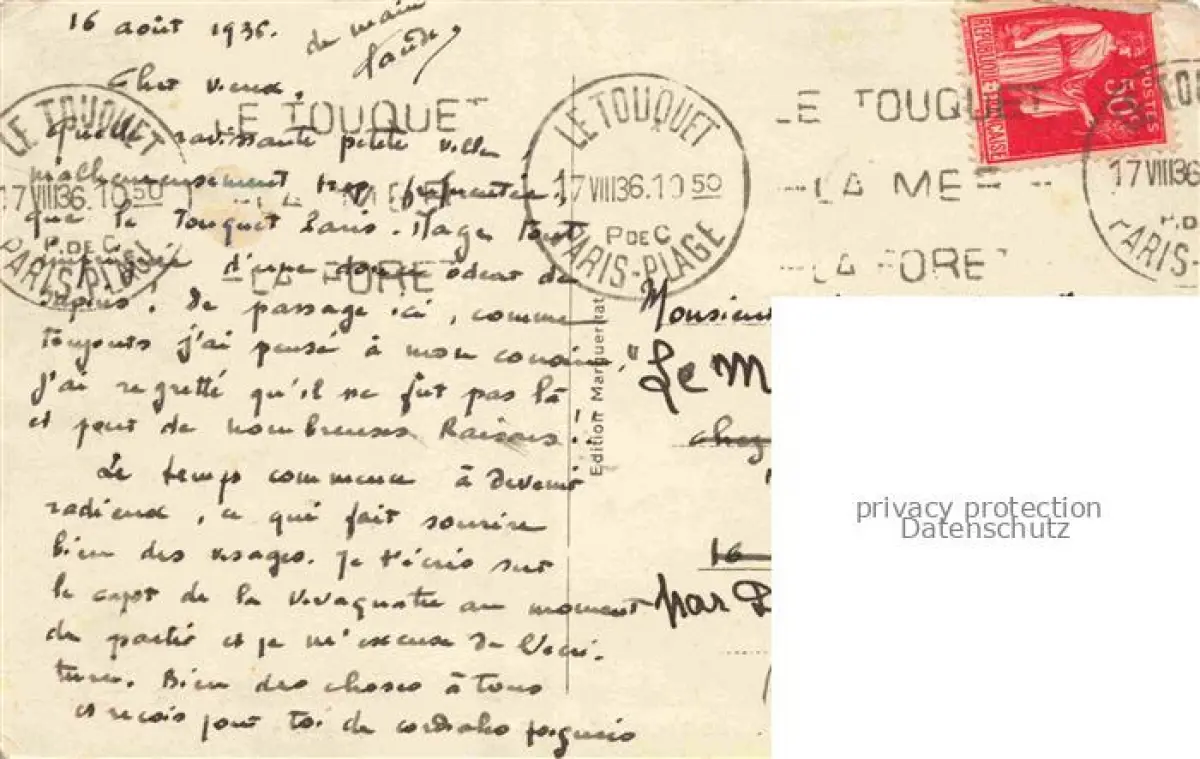 16 août 1936.
de main
Cher vieux,
Quelle ravissante petite ville,
malheureusement trop fréquentée,
que le Touquet Paris-Plage. Tout
imprégnée d'une douce odeur de
sapins. De passage ici, comme
toujours j'ai pensé à mon
J'ai regretté qu'il ne fut pas là
et pour de nombreuses Raisons!
Le temps commence à devenir
radieux, ce qui fait sourire
bien des visages. Je t'écris sur
le capot de la Vivaquatre au moment
de partir et je m'excuse de l'écri-
ture. Bien des choses à tous
et reçois pour toi de cordiales poignées
LE TOUQUET
17 VIII 36. 10 50
P. DE C.
PARIS-PLAGE
LE TOUQUET
-LA MER-
-LA FORET
LE TOUQUET
17 VIII 36. 10 50
P DE C
PARIS-PLAGE
LE TOUQUET
-LA MER-
-LA FORET
17 VIII 36
PARIS-
REPUBLIQUE FRANÇAISE
POSTES
50c
Edition Margueritat
Monsieur
"Le M
chez
16
par
privacy protection
Datenschutz